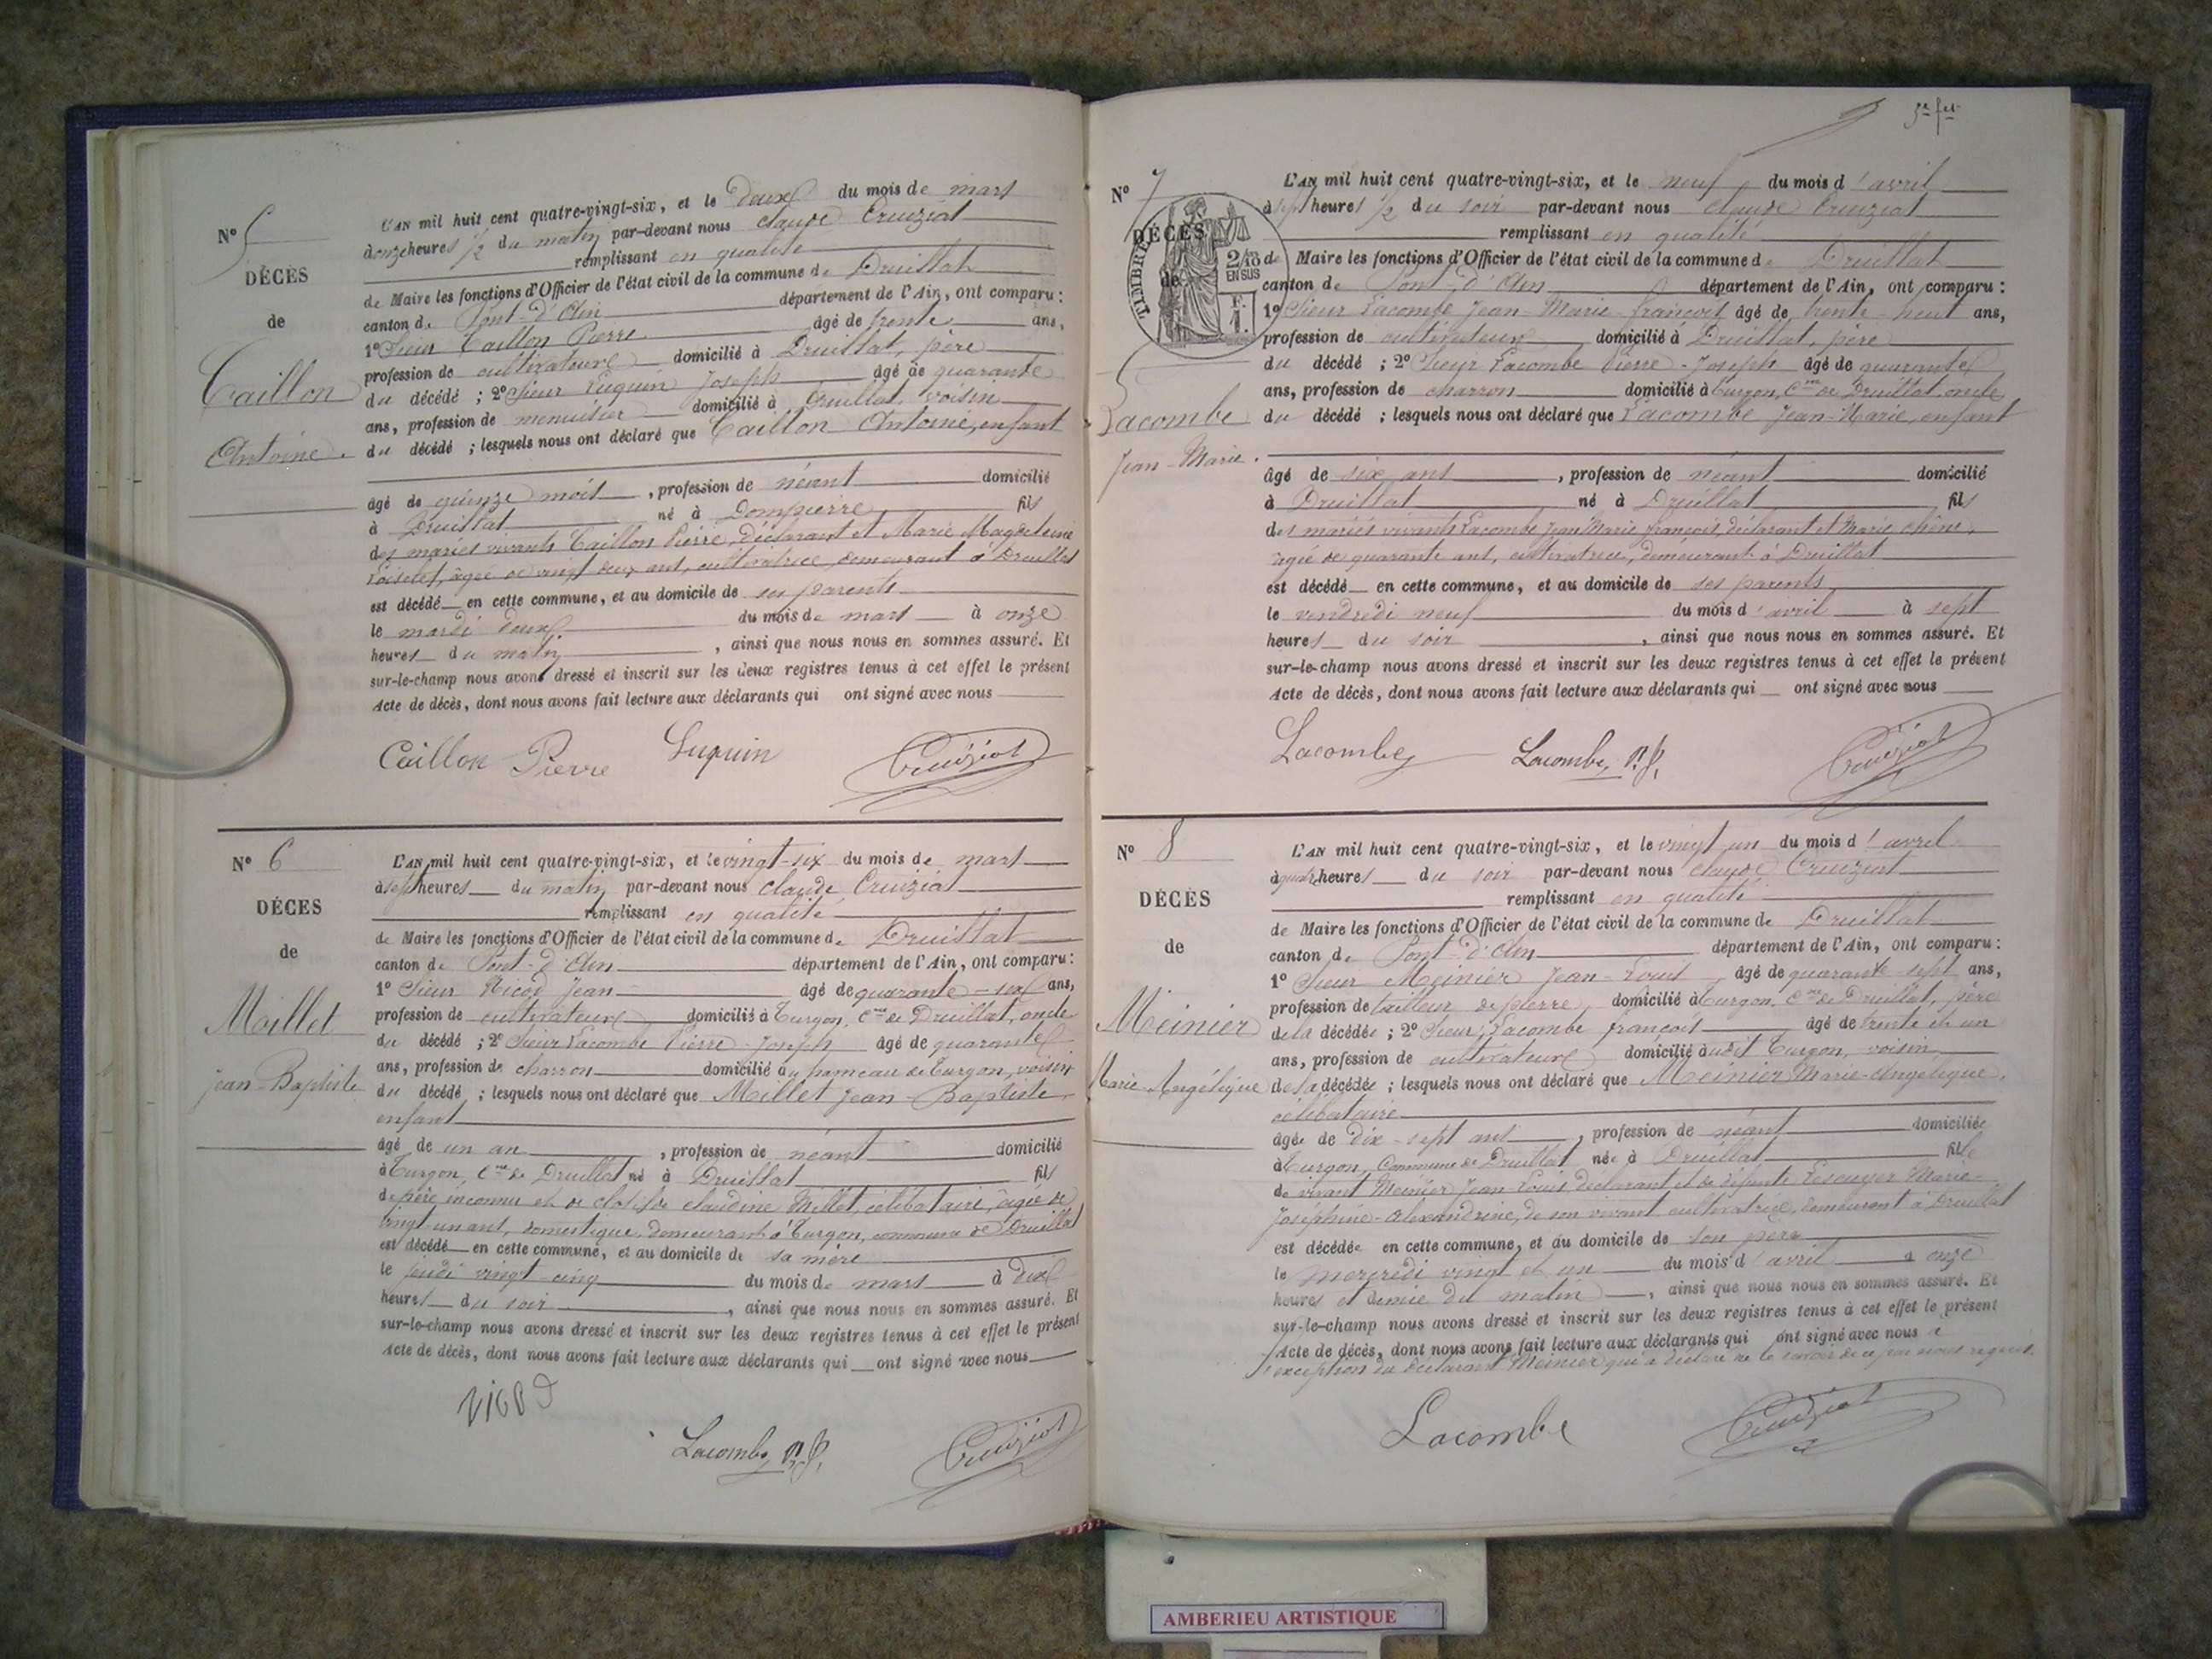 N° 5
DÉCÈS
de
Caillon
Antoine.
L'AN mil huit cent quatre-vingt-six, et le Deux du mois de mars
à onze heures 1/2 du matin par-devant nous Claude Cruiziat
remplissant en qualité
de Maire les fonctions d'Officier de l'état civil de la commune de Druillat
canton de Pont-d'Ain département de l'Ain, ont comparu :
1° Sieur Caillon Pierre âgé de trente ans,
profession de cultivateur domicilié à Druillat, père
du décédé ; 2° Sieur Luquin Joseph âgé de quarante
ans, profession de menuisier domicilié à Druillat, voisin
du décédé ; lesquels nous ont déclaré que Caillon Antoine, enfant
âgé de quinze mois, profession de néant domicilié
à Druillat né à Dompierre fils
des mariés vivants Caillon Pierre, déclarant et Marie Magdeleine
Loiselet, âgée de vingt deux ans, cultivatrice, demeurant à Druillat
est décédé en cette commune, et au domicile de ses parents
le mardi deux du mois de mars à onze
heures du matin, ainsi que nous nous en sommes assuré. Et
sur-le-champ nous avons dressé et inscrit sur les deux registres tenus à cet effet le présent
Acte de décès, dont nous avons fait lecture aux déclarants qui ont signé avec nous
Caillon Pierre Luquin Cruiziat
N° 6
DÉCES
de
Millet
jean-Baptiste
L'AN mil huit cent quatre-vingt-six, et le vingt-six du mois de mars
à sept heures du matin par-devant nous Claude Cruiziat
remplissant en qualité
de Maire les fonctions d'Officier de l'état civil de la commune de Druillat
canton de Pont-d'Ain département de l'Ain, ont comparu :
1° Sieur Nicod Jean âgé de quarante-six ans,
profession de cultivateur domicilié à Turgon, Cne de Druillat, oncle
du décédé ; 2° Sieur Lacombe Pierre-Joseph âgé de quarante
ans, profession de charron domicilié au hameau de Turgon, voisin
du décédé ; lesquels nous ont déclaré que Millet Jean-Baptiste
enfant
âgé de un an, profession de néant domicilié
à Turgon, Cne de Druillat né à Druillat fils
de père inconnu et de Claudine Millet, célibataire, âgée de
vingt un ans, domestique, demeurant à Turgon, commune de Druillat
est décédé en cette commune, et au domicile de sa mère
le jeudi vingt-cinq du mois de mars à dix
heures du soir, ainsi que nous nous en sommes assuré. Et
sur-le-champ nous avons dressé et inscrit sur les deux registres tenus à cet effet le présent
Acte de décès, dont nous avons fait lecture aux déclarants qui ont signé avec nous
Nicod
Lacombe, P. J. Cruiziat
N° 7
DÉCÈS
de
TIMBRE
2/10
EN SUS
F.
1.
Lacombe
Jean-Marie.
L'AN mil huit cent quatre-vingt-six, et le neuf du mois d'avril
à sept heures 1/2 du soir par-devant nous Claude Cruiziat
remplissant en qualité
de Maire les fonctions d'Officier de l'état civil de la commune de Druillat
canton de Pont-d'Ain département de l'Ain, ont comparu :
1° Sieur Lacombe Jean-Marie-françois âgé de trente-neuf ans,
profession de cultivateur domicilié à Druillat, père
du décédé ; 2° Sieur Lacombe Pierre-Joseph âgé de quarante
ans, profession de charron domicilié à Turgon, Cne de Druillat, oncle
du décédé ; lesquels nous ont déclaré que Lacombe Jean-Marie, enfant
âgé de six ans, profession de néant domicilié
à Druillat né à Druillat fils
des mariés vivants Lacombe Jean Marie françois, déclarant et Marie Chêne,
âgée de quarante ans, cultivatrice, demeurant à Druillat
est décédé en cette commune, et au domicile de ses parents
le vendredi neuf du mois d'avril à sept
heures du soir, ainsi que nous nous en sommes assuré. Et
sur-le-champ nous avons dressé et inscrit sur les deux registres tenus à cet effet le présent
Acte de décès, dont nous avons fait lecture aux déclarants qui ont signé avec nous
Lacombe Lacombe, P. J. Cruiziat
N° 8
DÉCÈS
de
Meinier
Marie-Angélique
L'AN mil huit cent quatre-vingt-six, et le vingt-un du mois d'avril
à quatre heures du soir par-devant nous Claude Cruiziat
remplissant en qualité
de Maire les fonctions d'Officier de l'état civil de la commune de Druillat
canton de Pont-d'Ain département de l'Ain, ont comparu :
1° Sieur Meinier Jean-Louis âgé de quarante-sept ans,
profession de tailleur de pierre, domicilié à Turgon, Cne de Druillat, père
de la décédée ; 2° Sieur Lacombe françois âgé de trente et un
ans, profession de cultivateur domicilié audit Turgon, voisin
de la décédée ; lesquels nous ont déclaré que Meinier Marie-Angélique,
célibataire
âgée de dix-sept ans, profession de néant domiciliée
à Turgon, Commune de Druillat née à Druillat fille
de vivant Meinier Jean-Louis déclarant et de défunte Lescuyer Marie-
Joséphine-Alexandrine, de son vivant cultivatrice, demeurant à Druillat
est décédée en cette commune, et au domicile de son père
le mercredi vingt et un du mois d'avril à onze
heures et demie du matin, ainsi que nous nous en sommes assuré. Et
sur-le-champ nous avons dressé et inscrit sur les deux registres tenus à cet effet le présent
Acte de décès, dont nous avons fait lecture aux déclarants qui ont signé avec nous à
l'exception du déclarant Meinier qui a déclaré ne le savoir de ce par nous requis.
Lacombe Cruiziat
AMBERIEU ARTISTIQUE